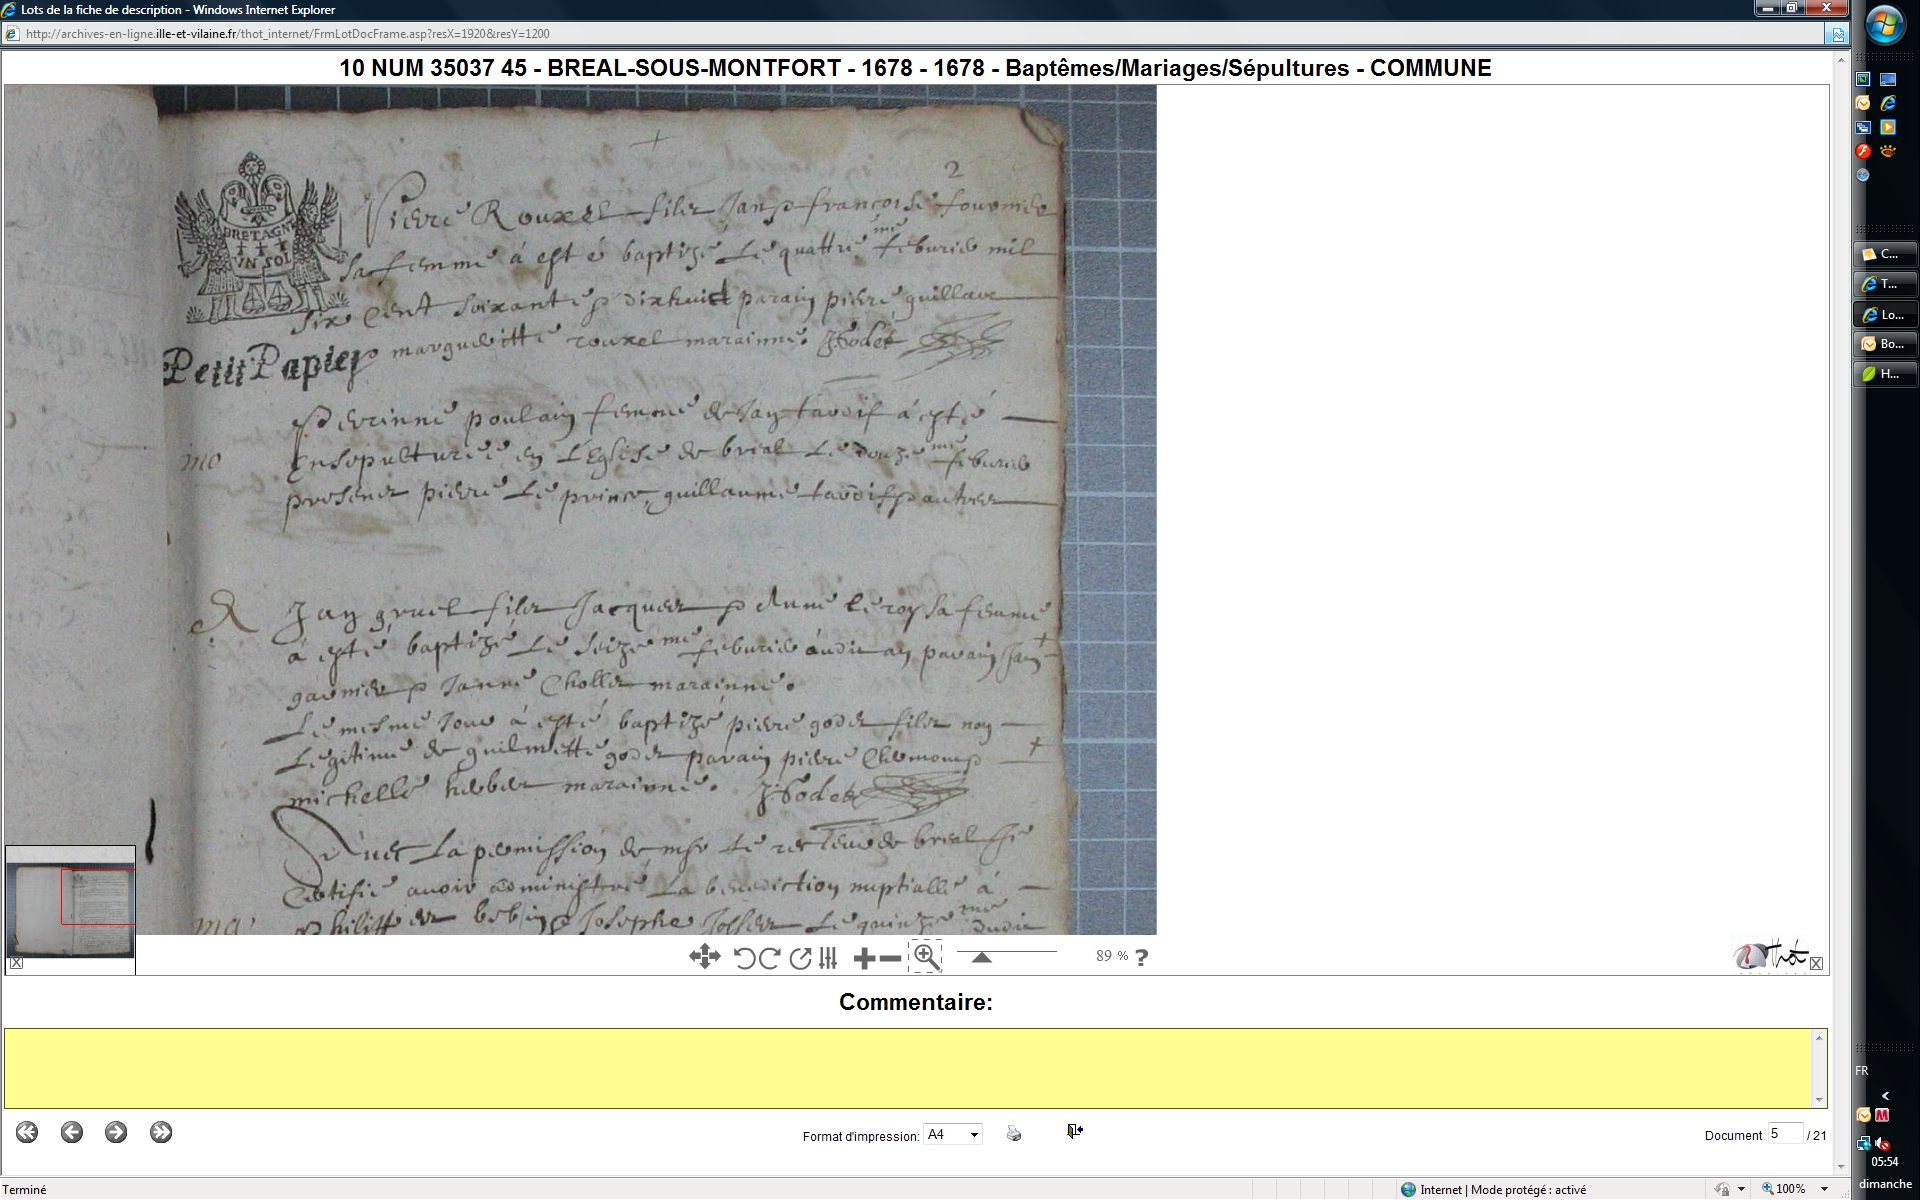 Lots de la fiche de description - Windows Internet Explorer
http://archives-en-ligne.ille-et-vilaine.fr/thot_internet/FrmLotDocFrame.asp?resX=1920&resY=1200
10 NUM 35037 45 - BREAL-SOUS-MONTFORT - 1678 - 1678 - Baptêmes/Mariages/Sépultures - COMMUNE
2
BRETAGNE
UN SOL
Petit Papier
Pierre Rouxel filz Jan et francoise fournier
sa femme à esté baptizé le quattre me feburier mil
six cent soixante et dixhuict parain pierre guillave
et margueritte rouxel marainne. Godet
Perrinne poulain femme de Jan tardif à esté
mo
Ensepulturée en l'Eglise de breal le douze me feburier
presener pierre le prince, guillaume tardif et autres
Jan gruel filz Jacques et Anne le roy sa femme
à esté baptizé le seize me feburier audit an parain Jan
garnier et Janne Chollet marainne.
Le mesme Jour à esté baptizé pierre godet filz non
Legitime de guilmette godet parain pierre
michelle herber marainne. Godet
Avec la permission de le recteur de breal Je
Certifie avoir administré la benediction nuptialle à
ma
Josephe le quinze me dudit
89 %
?
Thot
Commentaire:
Format d'impression: A4
Document 5 / 21
Terminé
Internet | Mode protégé : activé
100%
C...
T...
Lo...
Bo...
H...
FR
05:54
dimanche